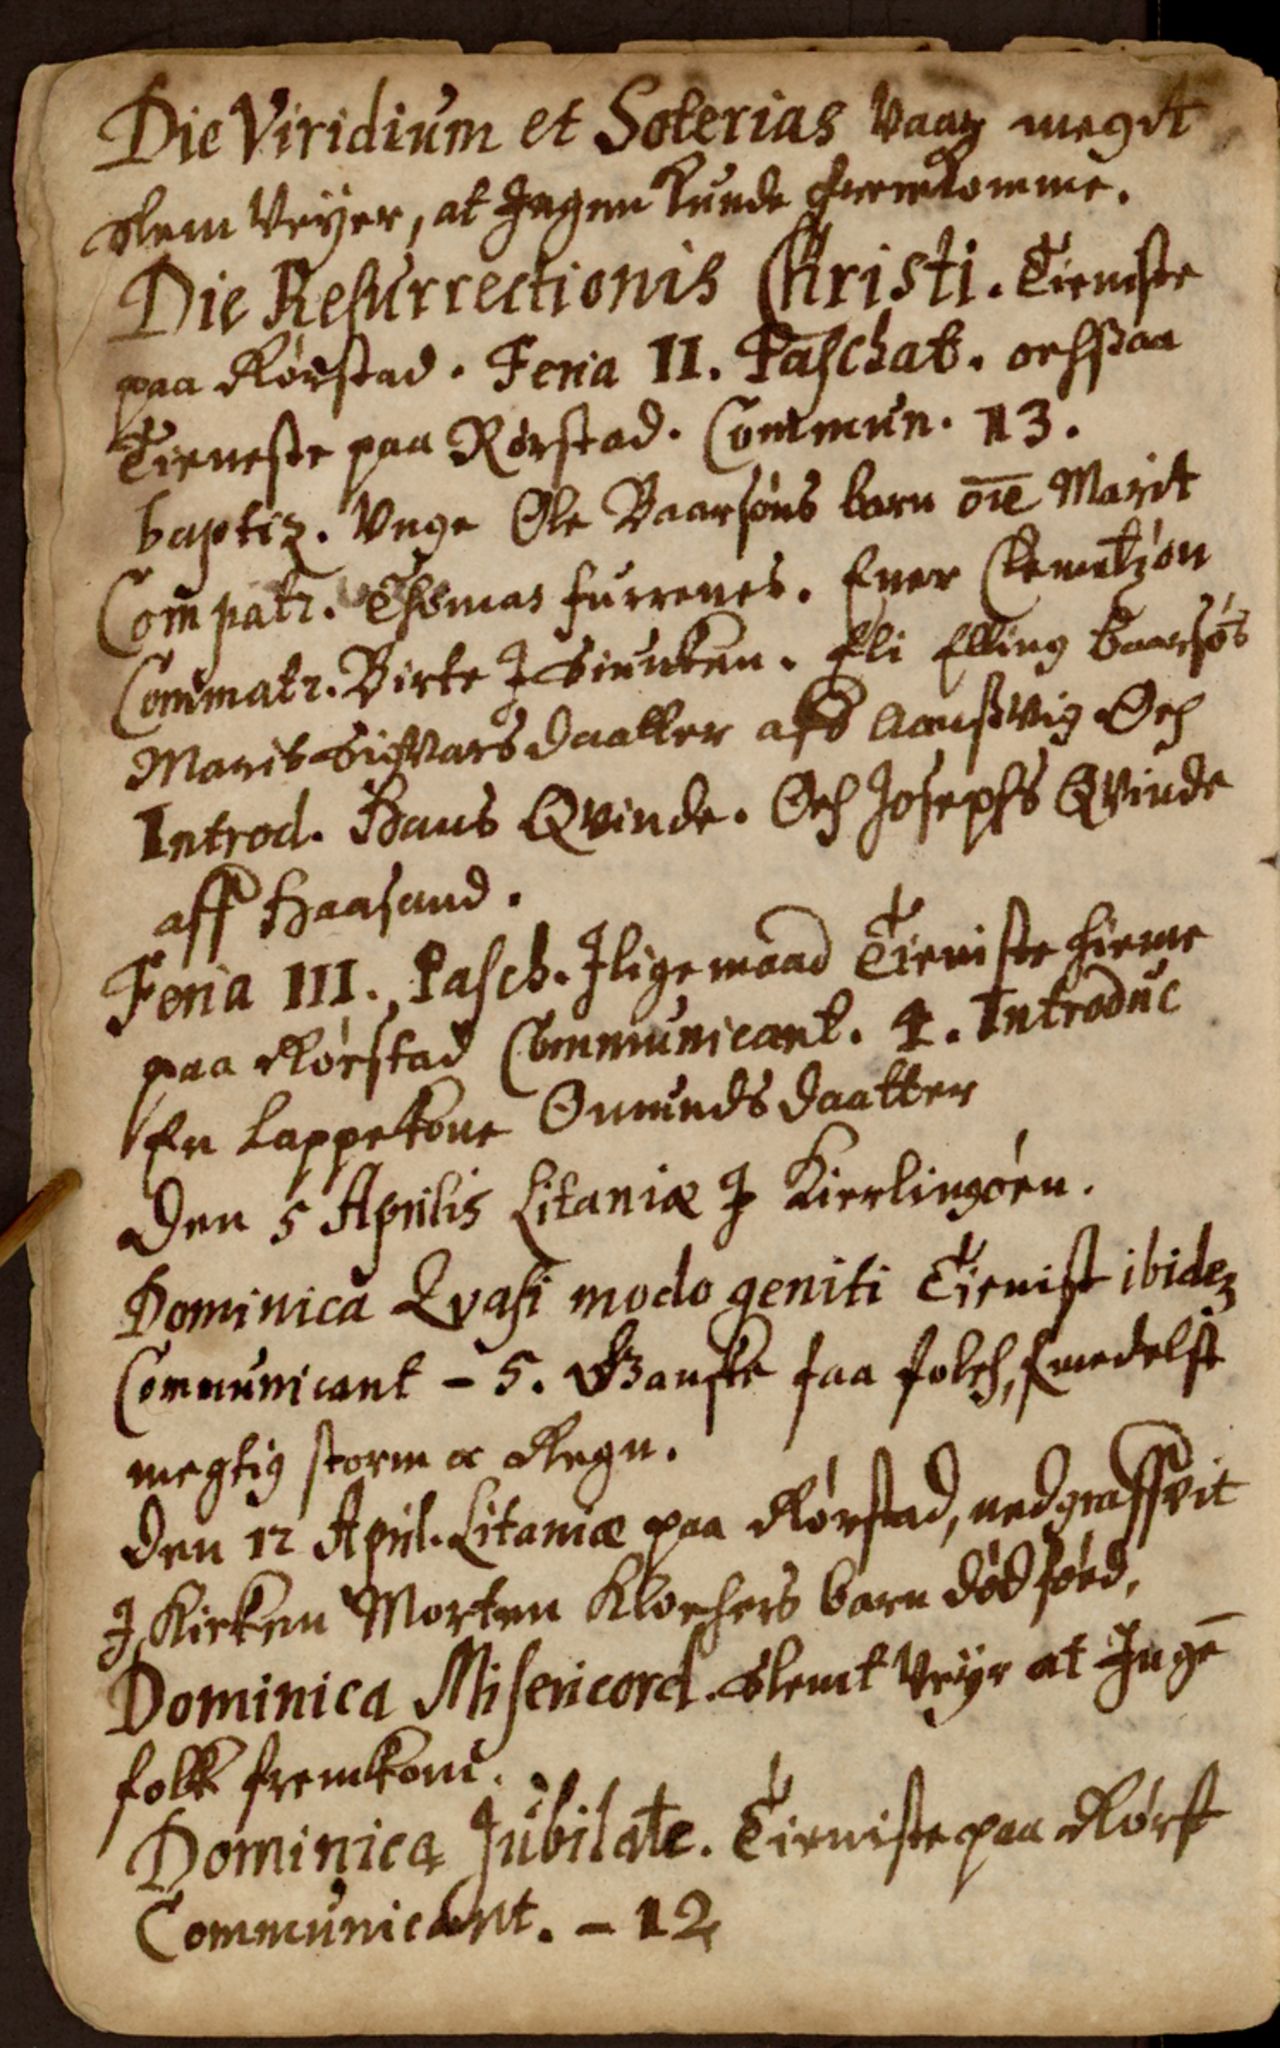 Die Viridium et Soterias Vaar megit
slem Veyer, at Ingen kunde fremkomme.
Die Resurrectionis Christi. Tieniste
paa Rørstad. Feria II. Paschat. ochsaa
Tieneste paa Rørstad. Commun. 13.
baptiz. Unge Ole Baarsøns barn Marit
Compatr. Thomas furrenes. Ener
Commatr. Birte I. Eli Elling Baarsøs
Marit Sivarsdaatter aff Aansvig Och
Introd. Hans Qvinde. Och Josephs Qvinde
aff Haasand.
Feria III. Pasch. Jligemaad Tieniste hieme
paa Rørstad Communicant. 4. Introduc
En Lappekone Omundsdaatter
Den 5 Aprilis Litaniæ J Kierlingøen.
Dominica Qvasi modo geniti Tienist ibidez
Communicant - 5. Ganske faa folch, Emedelst
megtig storm & Regn.
Den 12 April. Litaniæ paa Rørstad, nedgraffvit
J Kirken Morten Klochers barn død føed.
Dominica Misericord. Slemt Veyr at Ingē
folk fremkom.
Dominica Jubilate. Tieniste paa Rørst
Communicant. - 12